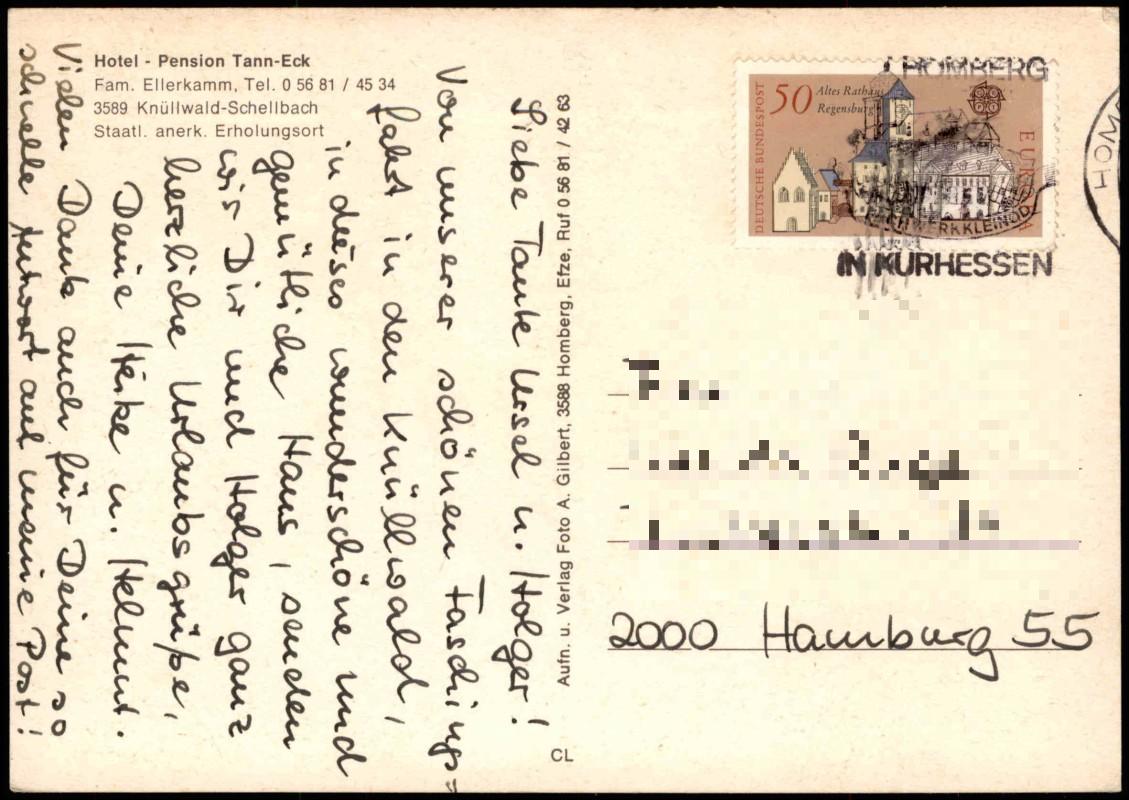 Hotel - Pension Tann-Eck
Fam. Ellerkamm, Tel. 0 56 81 / 45 34
3589 Knüllwald-Schellbach
Staatl. anerk. Erholungsort
Liebe Tante Ursel u. Holger!
Von unserer schönen Faschings=
fahrt in den Knüllwald,
in dieses wunderschöne und
gemütliche Haus, senden
wir Dir und Holger ganz
herzliche Urlaubsgrüße,
Deine Heike u. Helmut.
Vielen Dank auch für Deine so
schnelle Antwort auf meine Post!
Aufn. u. Verlag Foto A. Gilbert, 3588 Homberg, Efze, Ruf 0 56 81 / 42 63
CL
DEUTSCHE BUNDESPOST
50
Altes Rathaus
Regensburg
EUROPA
HOMBERG
FACHWERKKLEINOD
IN KURHESSEN
HOM
2000 Hamburg 55